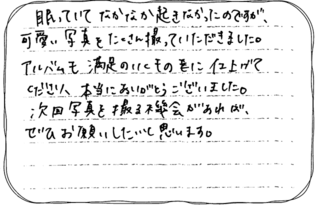 眠っていてなかなか起きなかったのですが、
可愛い写真をたくさん撮っていただきました。
アルバムも満足のいくものに仕上げて
ください、本当にありがとうございました。
次回写真を撮る機会があれば、
ぜひお願いしたいと思います。